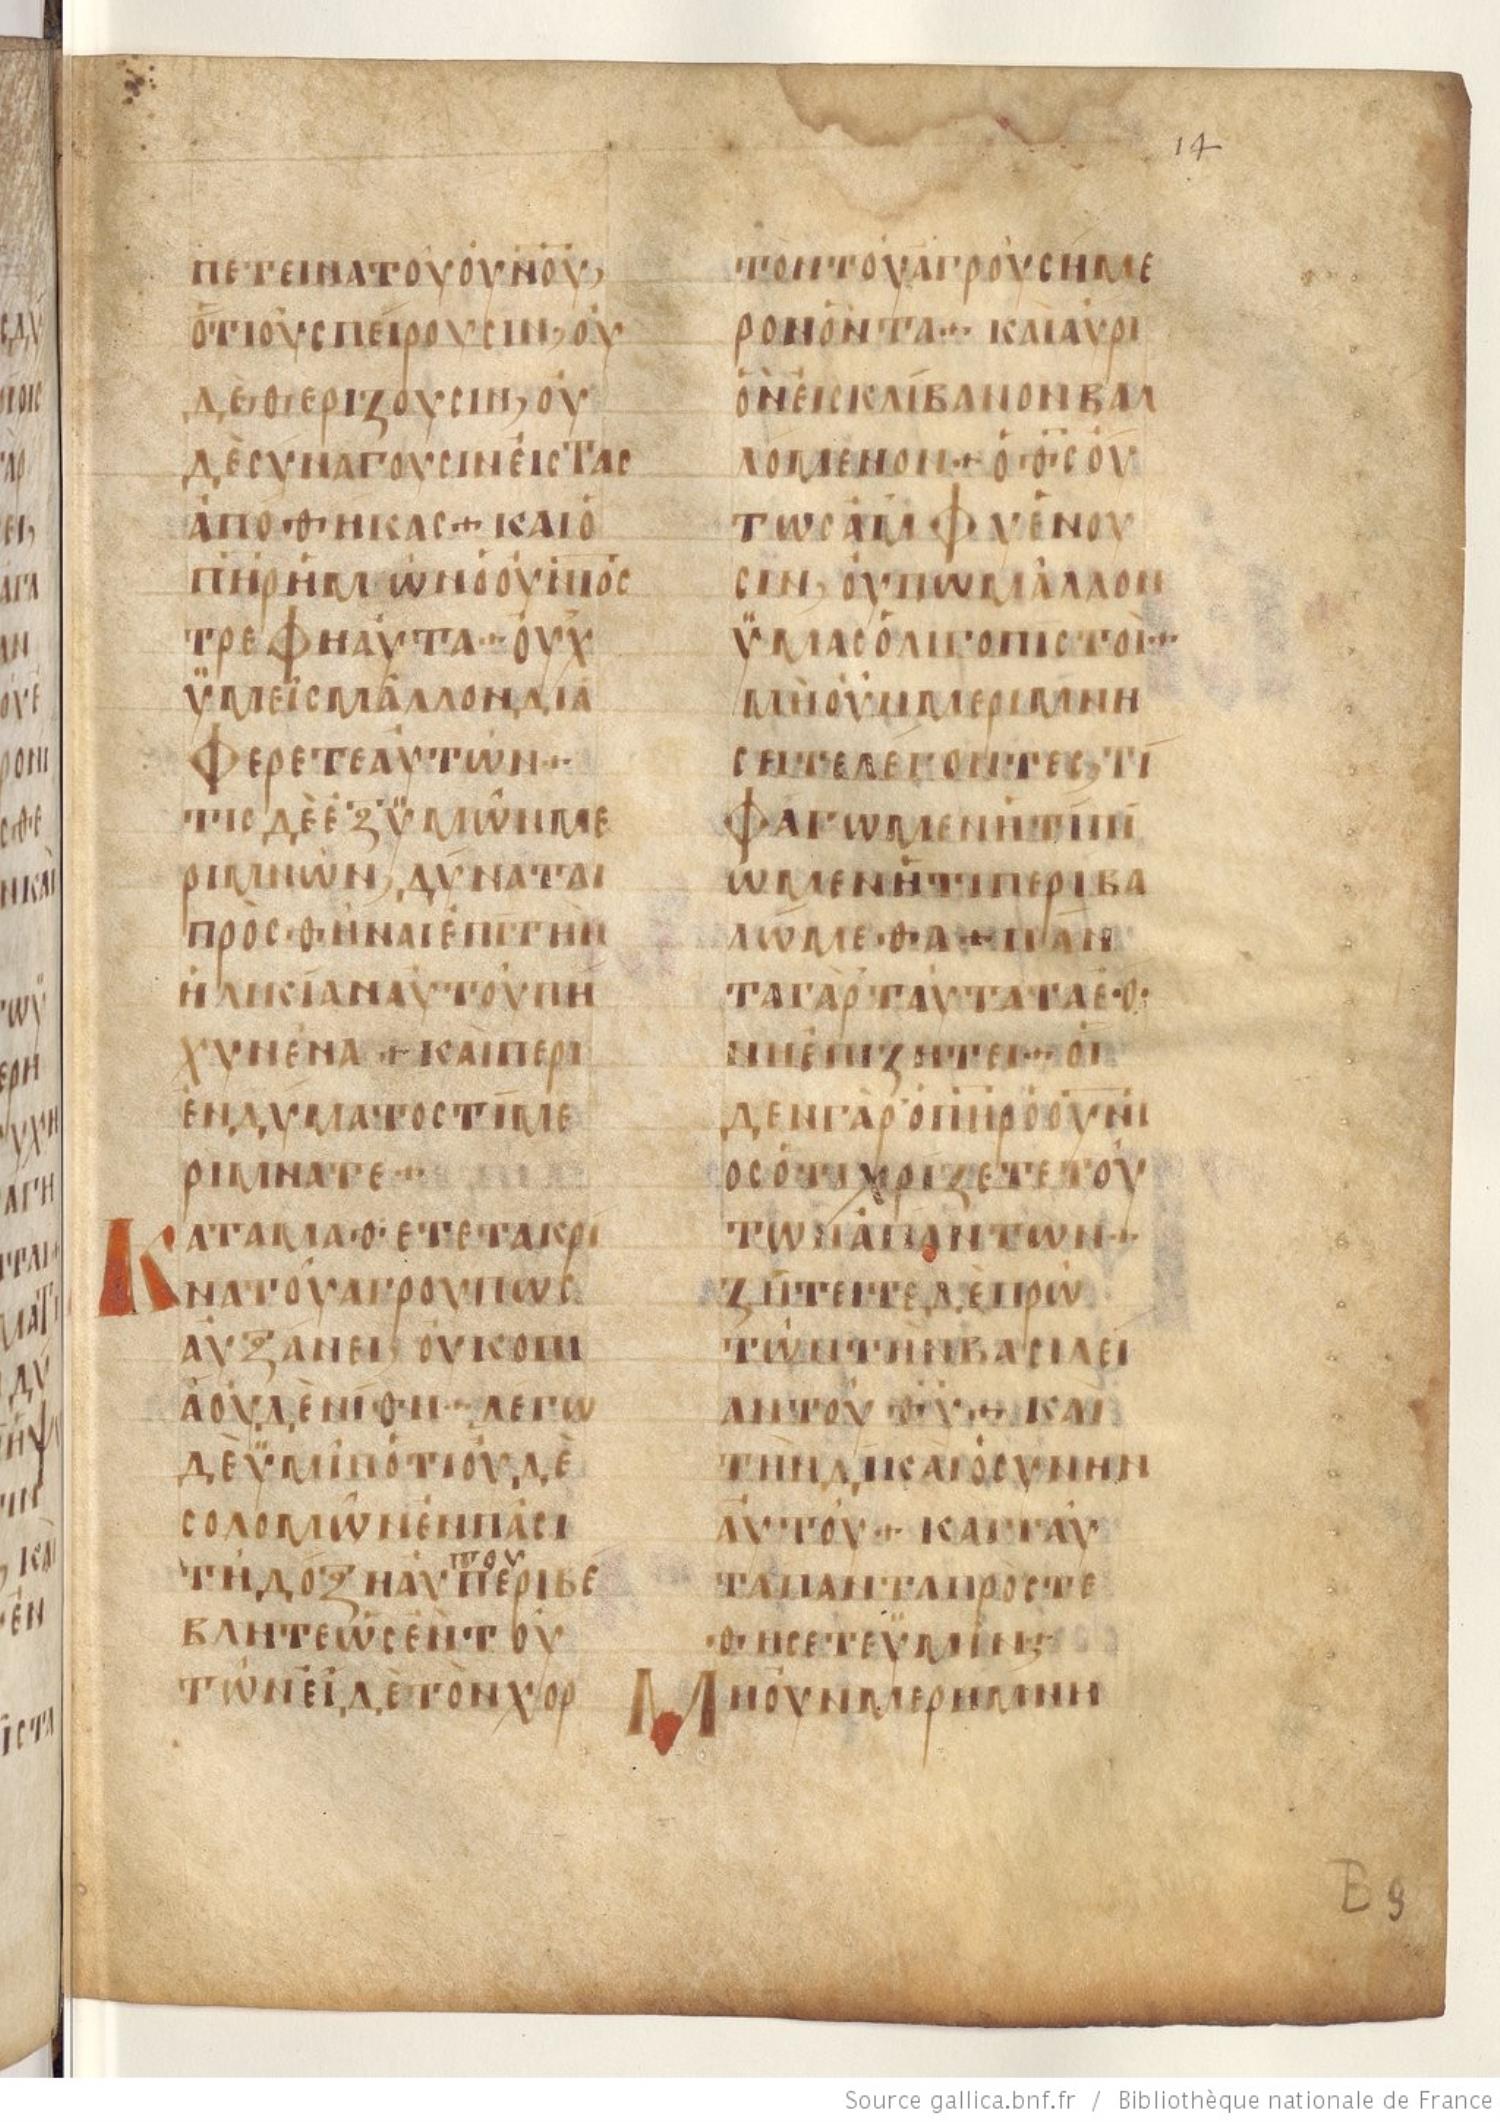 14
ΠΕΤΕΙΝΑΤΟΥΟΥΝΟΥ,
ΟΤΙΟΥСΠΕΙΡΟΥСΙΝ, ΟΥ
ΔΕΘΕΡΙΖΟΥСΙΝ, ΟΥ
ΔΕСΥΝΑΓΟΥСΙΝΕΙСΤΑС
ΑΠΟΘΗΚΑС+ ΚΑΙΟ
ΠΗΡΗΜΩΝΟΟΥΝΙΟС
ΤΡΕΦΗΑΥΤΑ+ ΟΥΧ
ΫΜΕΙСΜΑΛΛΟΝΔΙΑ
ΦΕΡΕΤΕΑΥΤΩΝ+
ΤΙСΔΕΕΞΫΜΩΝΜΕ
ΡΙΜΝΩΝ, ΔΥΝΑΤΑΙ
ΠΡΟСΘΗΝΑΙΕΠΙΤΗΝ
ΗΛΗΚΙΑΝΑΥΤΟΥΠΗ
ΧΥΝΕΝΑ + ΚΑΙΠΕΡΙ
ΕΝΔΥΜΑΤΟСΤΙΜΕ
ΡΙΜΝΑΤΕ+
ΚΑΤΑΜΑΘΕΤΕΤΑΚΡΙ
ΝΑΤΟΥΑΓΡΟΥΠΩС
ΑΥΞΑΝΕΙ, ΟΥΚΟΠΙ
ΑΟΥΔΕΝΙΘΗ+ ΛΕΓΩ
ΔΕΫΜΙΝΟΤΙΟΥΔΕ
СΟΛΟΜΩΝΕΝΠΑСΙ
ΤΗΔΟΞΗΑΥΤΟΥΠΕΡΙΒΕ
ΒΛΗΤΕΩСΕΝΤΟΥ
ΤΩΝΕΙΔΕΤΟΝΧΟΡ
ΤΟΝΤΟΥΑΓΡΟΥСΗΜΕ
ΡΟΝΟΝΤΑ+ ΚΑΙΑΥΡΙ
ΟΝΕΙСΚΛΙΒΑΝΟΝΒΑΛ
ΛΟΜΕΝΟΝ+ΟΘСΟΥ
ΤΩСΑΜΦΥΕΝΟΥ
СΙΝ, ΟΥΠΩΜΑΛΛΟΝ
ΫΜΑСΟΛΙΓΟΠΙСΤΟΙ+
ΜΗΟΥΝΜΕΡΙΜΝΗ
СΗΤΕΛΕΓΟΝΤΕС, ΤΙ
ΦΑΓΩΜΕΝΗΤΙΠΙ
ΩΜΕΝΗΤΙΠΕΡΙΒΑ
ΛΩΜΕΘΑ+ΠΑΝ
ΤΑΓΑΡΤΑΥΤΑΤΑΕΘ
ΝΗΕΠΙΖΗΤΕΙ+ ΟΙ
ΔΕΝΓΑΡΟΠΗΡΟΟΥΝΙ
ΟСΟΤΙΧΡΙΖΕΤΕΤΟΥ
ΤΩΝΑΠΑΝΤΩΝ+
ΖΗΤΕΙΤΕΔΕΠΡΩ
ΤΩΝΤΗΝΒΑСΙΛΕΙ
ΑΝΤΟΥ ΘΥ+ ΚΑΙ
ΤΗΝΔΙΚΑΙΟСΥΝΗΝ
ΑΥΤΟΥ+ ΚΑΙΤΑΥ
ΤΑΠΑΝΤΑΠΡΟСΤΕ
ΘΗСΕΤΕΫΜΙΝ+
ΜΗΟΥΝΜΕΡΗΜΝΗ
B 9
Source gallica.bnf.fr / Bibliothèque nationale de France